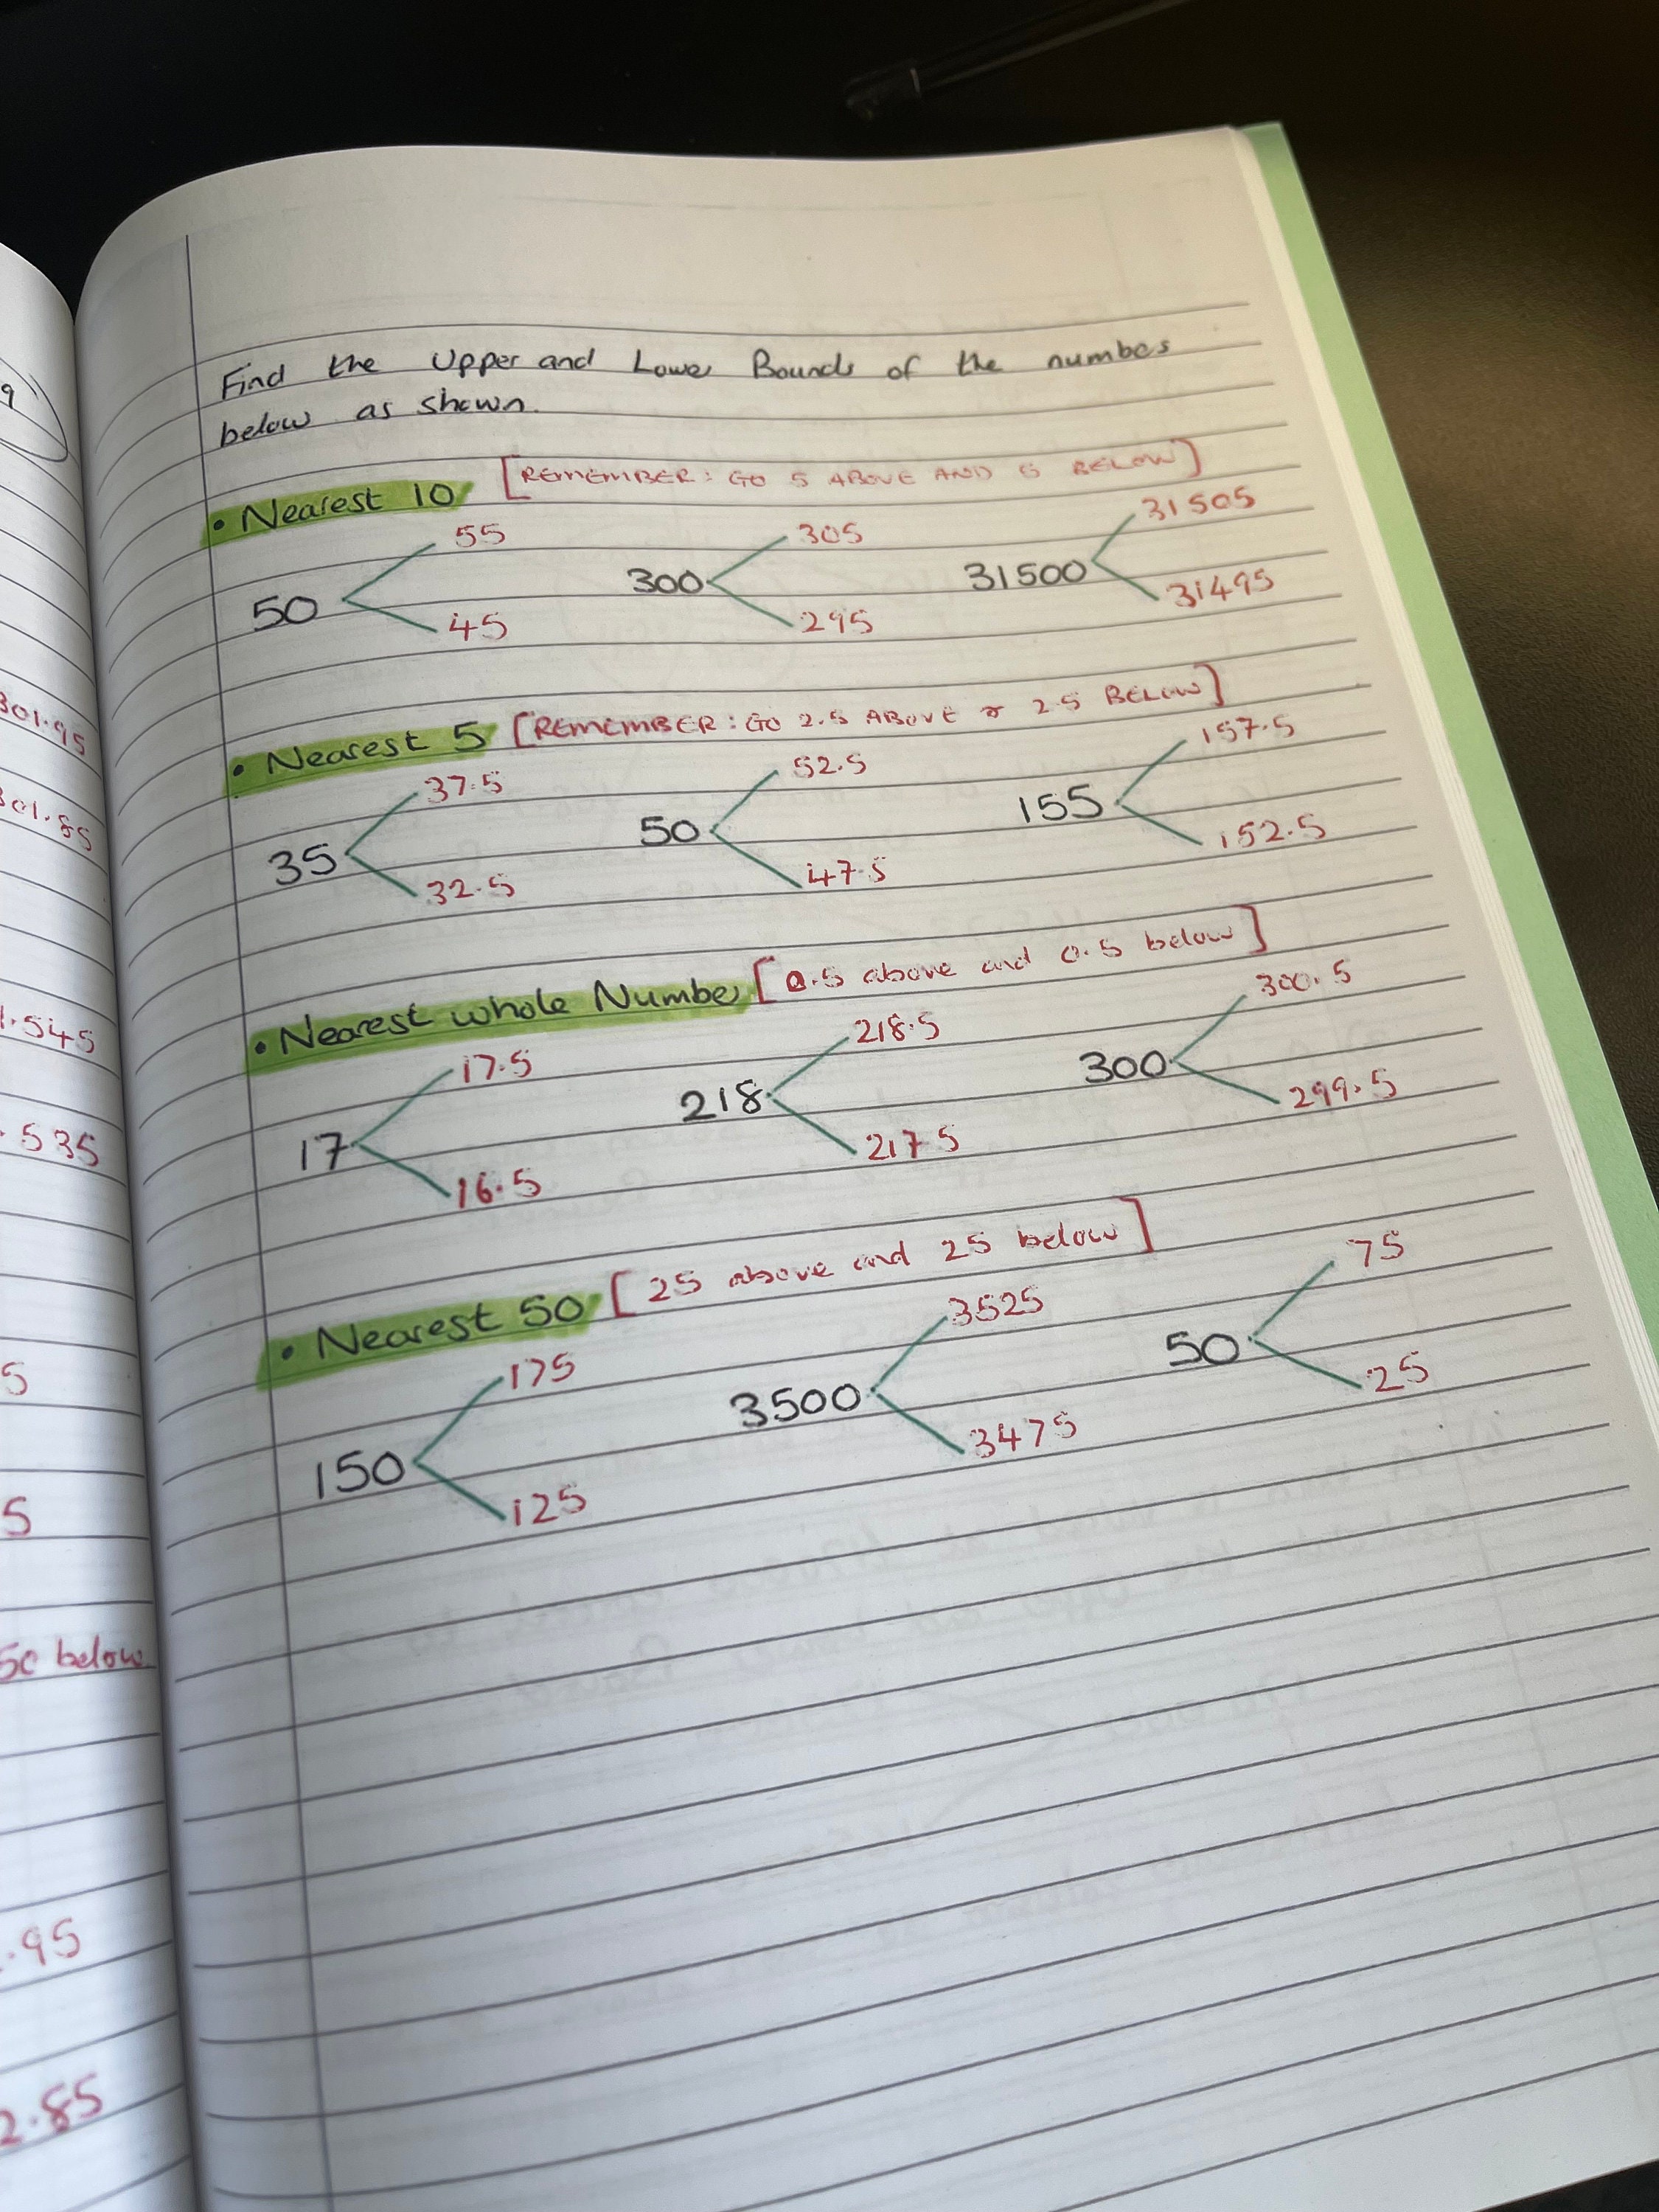 9
301.95
301.85
1.545
.535
5
5
50 below
.95
2.85
Find the Upper and Lower Bounds of the numbers
below as shown.
• Nearest 10 [REMEMBER: GO 5 ABOVE AND 5 BELOW]
55 305 31505
50 300 31500
45 295 31495
• Nearest 5 [REMEMBER: GO 2.5 ABOVE & 2.5 BELOW]
37.5 52.5 157.5
35 50 155
32.5 47.5 152.5
• Nearest whole Number [0.5 above and 0.5 below]
17.5 218.5 300.5
17 218 300
16.5 217.5 299.5
• Nearest 50 [25 above and 25 below]
175 3525 75
150 3500 50
125 3475 25